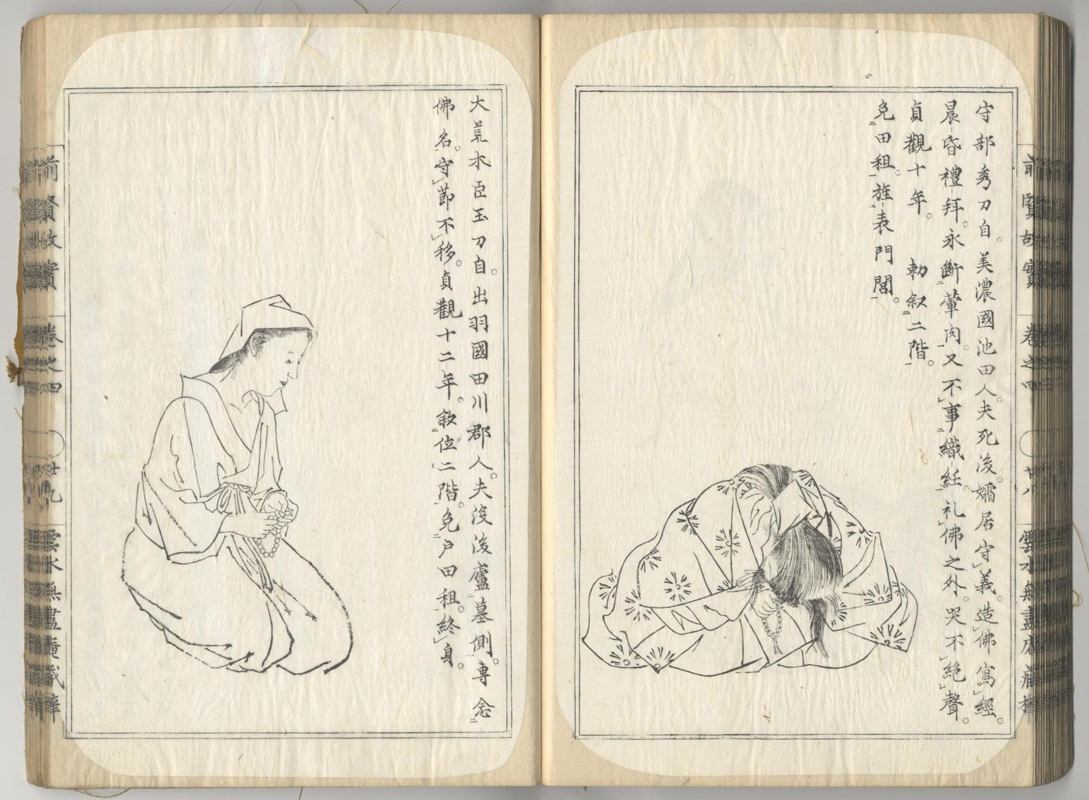 守部秀刀自。美濃國池田人夫死後孀居守義。造佛寫經。
晨昏禮拜。永斷葷肉。又不事織紝。礼佛之外。哭不絶聲。
貞觀十年。 勅叙二階。
免田租。旌表門閭。
前賢故實 卷之四 廿八 雲水無盡庵藏梓
大荒木臣玉刀自。出羽國田川郡人。夫没後廬墓側。専念
佛名。守節不移。貞觀十二年。叙位二階。免戸田租。終身。
前賢故實 卷之四 廿九 雲水無盡庵藏梓